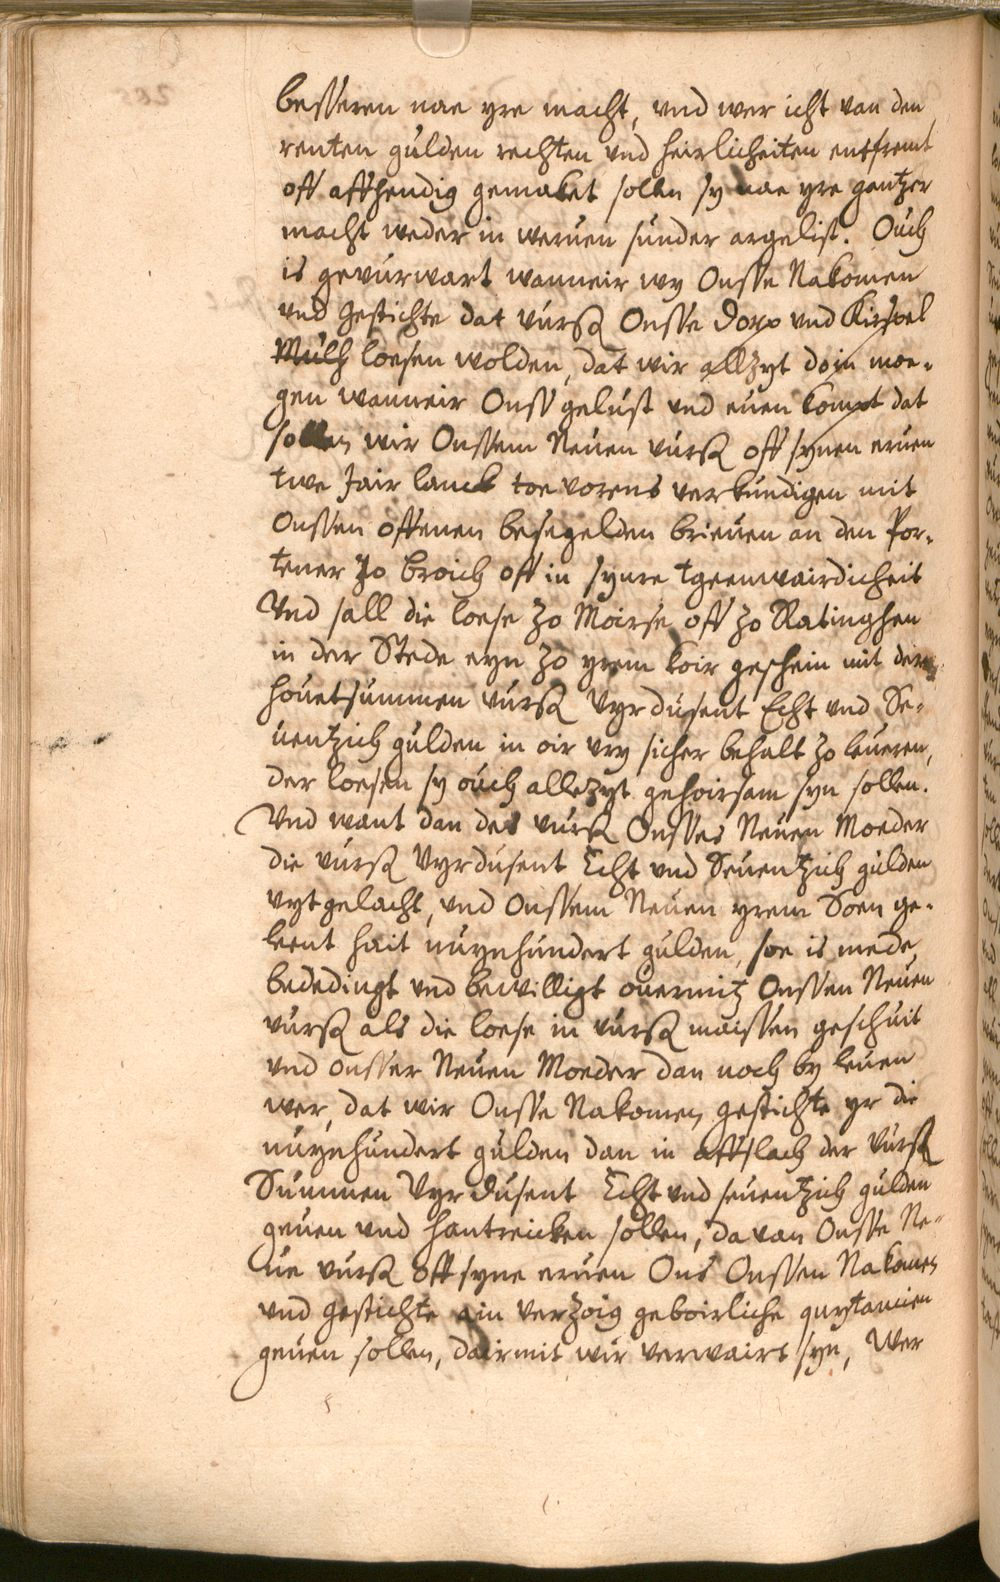 besseren nae yre macht, vnd wer icht van den
renten gulden rechten vnd heirlicheiten entfremt
off affhendig gemaket sollen sy nae yre gantzer
macht weder in weruen sunder argelist. Ouch
is gevurwart wanneir wy Onsse Nakomen
vnd Gestichte dat vursß Onsse Dorp vnd Kirspel
Mulh loesen wolden, dat wir allzyt doin moe-
gen wanneir Onss gelust vnd euen kompt dat
sollen wir Onssem Neuen vursß off synen eruen
twe Jair lanck toe vorens verkundigen mit
Onssen offenen besegelden brieuen an den Por-
tener zo broich off in synre tgeenwairdicheit
Vnd sall die loese zo Moirse off zo Ratinghen
in der Stede eyn zo yrem koir geschein mit der
houetsummen vursß Vyrdusent Echt vnd Se-
uentzich gulden in oir vry sicher behalt zo leueren,
der loesen sy ouch allezyt gehoirsam syn sollen.
Vnd want dan des vursß Onsses Neuen Moeder
die vursß Vyrdusent Echt vnd Seuentzich gulden
vytgelacht, vnd Onssem Neuen yrem Soen ge-
leent hait nuynhundert gulden, soe is mede
bededingt vnd bewilligt ouermitz Onssen Neuen
vursß als die loese in vursß maissen geschuit
vnd onsser Neuen Moeder dan noch by leuen
wer, dat wir Onsse Nakomen, gestichte yr die
nuynhundert gulden dan in affslach der vursß
Summen Vyrdusent Echt vnd seuentzich gulden
geuen vnd hantreicken sollen, da van Onsse Ne-
ue vursß off syne eruen Ons Onssen Nakomen
vnd gestichte ain verzoig geboirliche quytancien
geuen sollen, dairmit wir verwairt syn, Wer